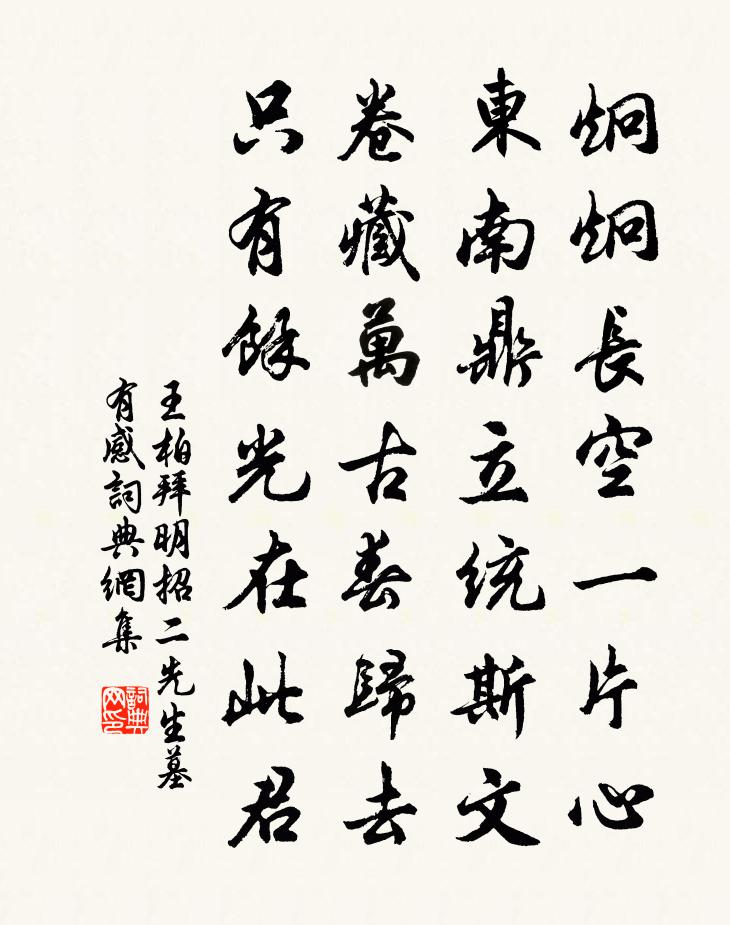 炯炯長空一片心
東南鼎立統斯文
卷藏萬古春歸去
只有餘光在此君
王柏拜明招二先生墓
有感詞典網集
詞典
网印